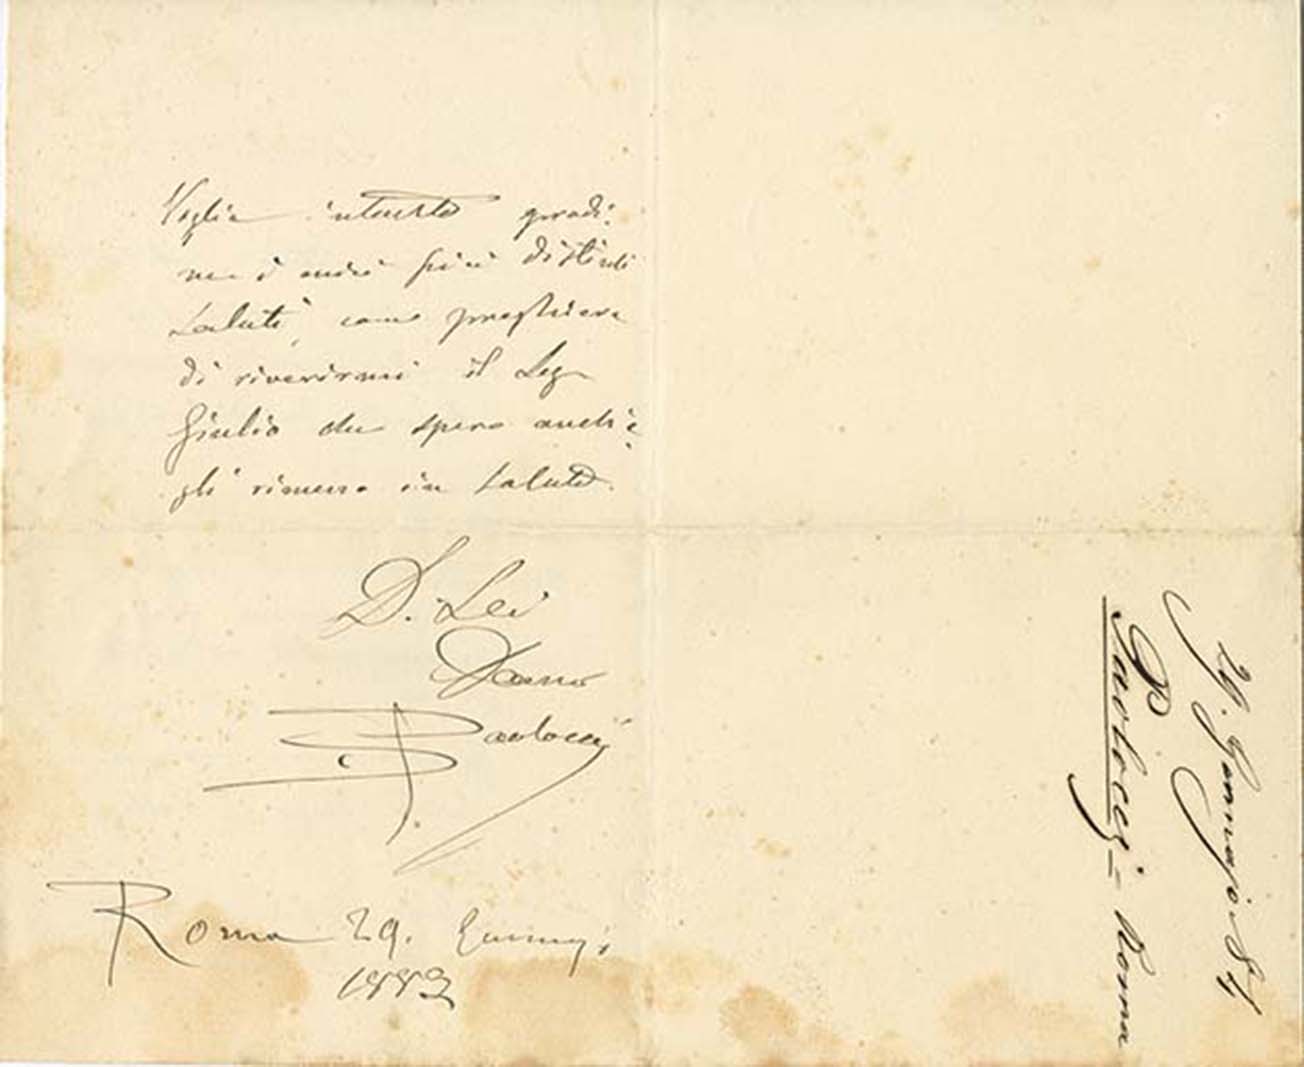 Voglia intanto gradi-
re i miei più distinti
saluti, come pregherei
di riverirmi il Sig
Giulio che spero anch'e-
gli rimesso in salute.
D. Lei
Dev.mo
Paolocci
Roma 29. Gennajo
188
29. Gennajo 84
Paolocci - Roma